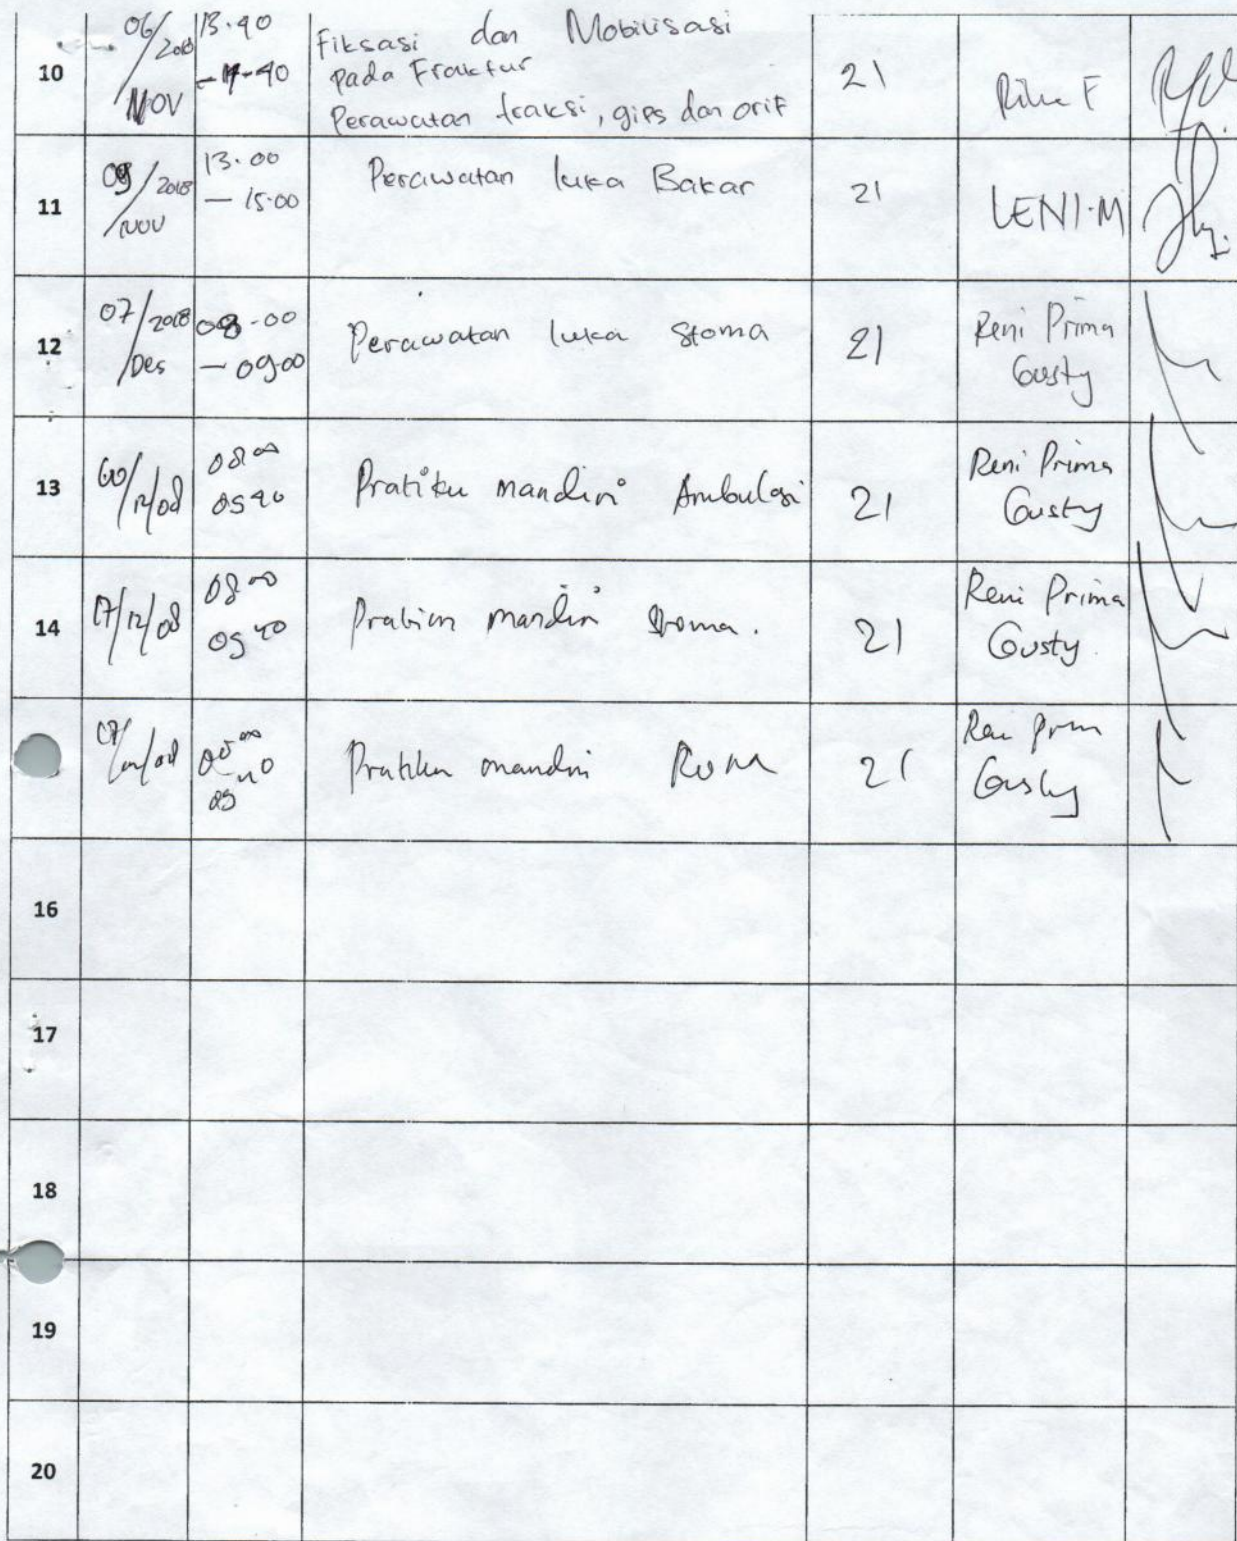 10
06/2018
/NOV
13.40
-14-40
Fiksasi dan Mobilisasi
pada Fraktur
Perawatan traksi, gips dan orif
21
Rika F
11
09/2018
/NOV
13.00
- 15.00
Perawatan luka Bakar
21
LENI.M
12
07/2018
/Des
08.00
- 09.00
Perawatan luka Stoma
21
Reni Prima
Gusty
13
08 00
09 40
Pratiku mandiri Ambulasi
21
Reni Prima
Gusty
14
17/12/08
08 00
09 40
mandiri Stoma.
21
Reni Prima
Gusty
mandiri ROM
21
Gusty
16
17
18
19
20